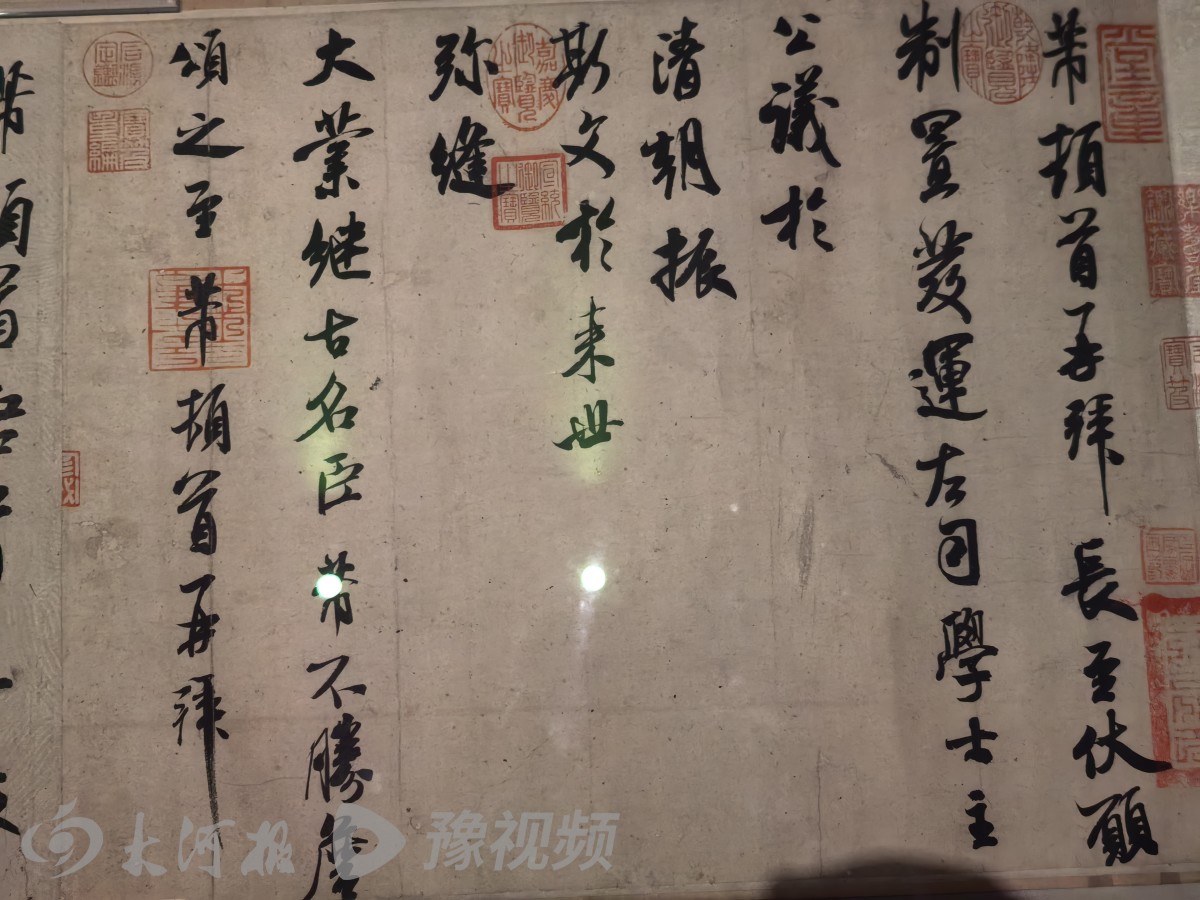 芾頓首再拜長至伏願
制置發運左司學士主
公議於
清朝振
斯文於来世
弥縫
大業継古名臣芾不勝詹
頌之至芾頓首再拜
大河报 豫视频